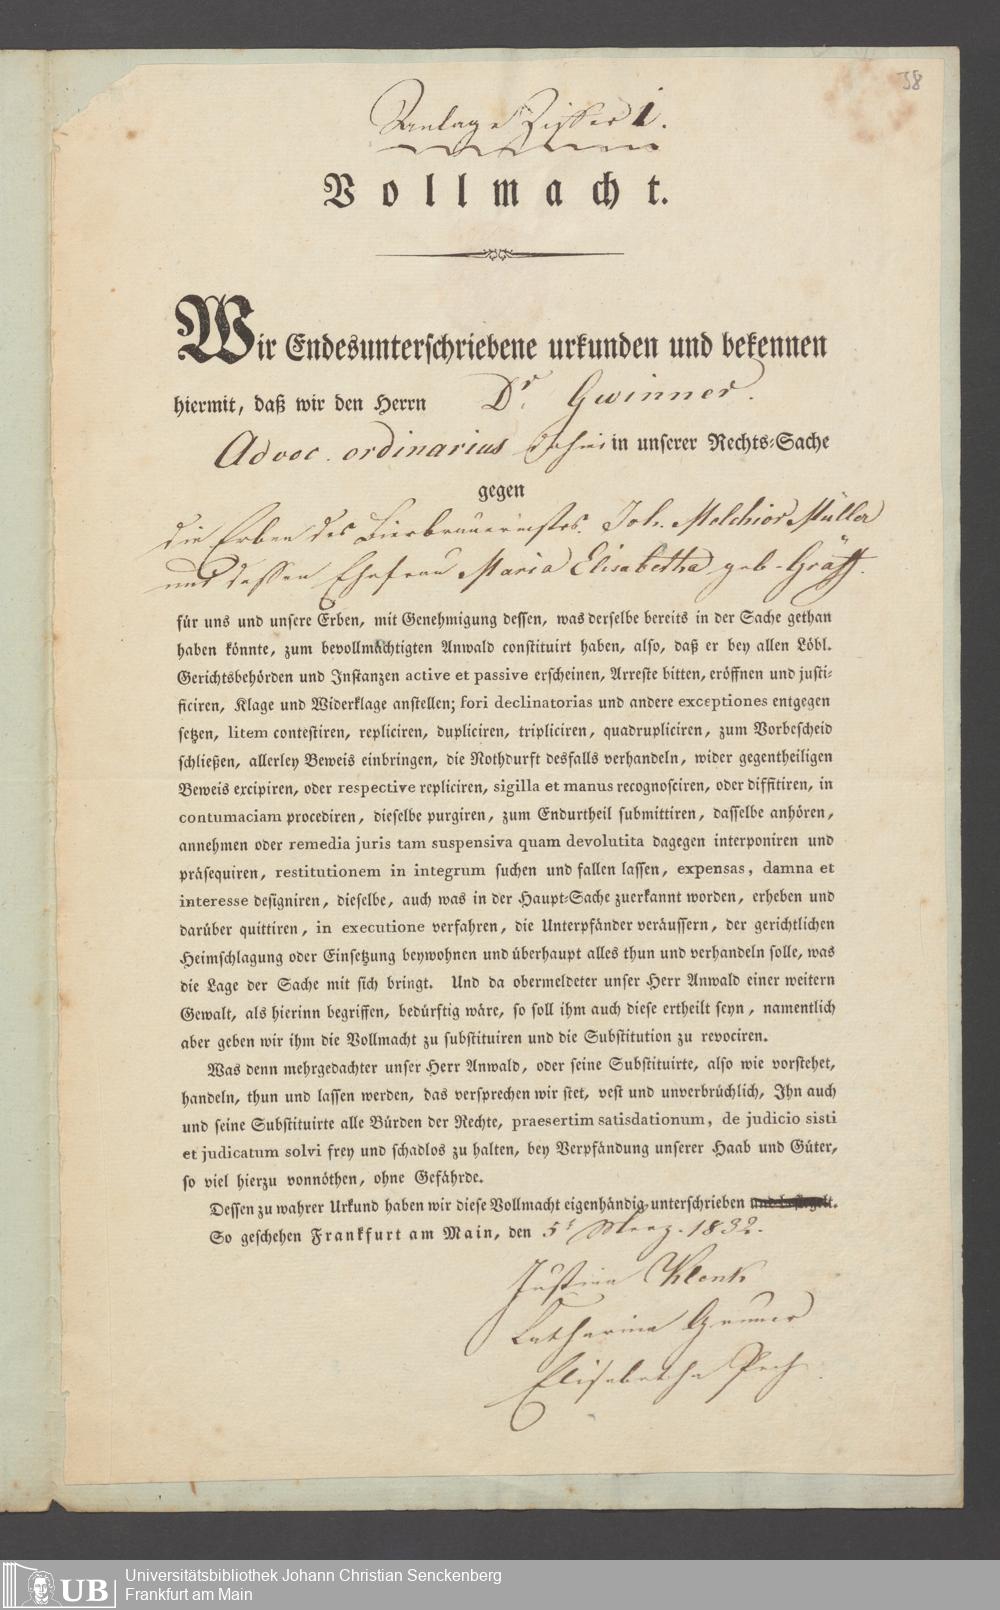 38
Anlage Ziffer 1.
Vollmacht.
Wir Endesunterschriebene urkunden und bekennen
hiermit, daß wir den Herrn Dr. Gwinner.
Advoc. ordinarius dahier in unserer Rechts-Sache
gegen
die Erben des Bierbrauermstrs. Joh. Melchior Müller
und dessen Ehefrau Maria Elisabetha geb. Gräff.
für uns und unsere Erben, mit Genehmigung dessen, was derselbe bereits in der Sache gethan
haben könnte, zum bevollmächtigten Anwald constituirt haben, also, daß er bey allen Löbl.
Gerichtsbehörden und Instanzen active et passive erscheinen, Arreste bitten, eröffnen und justi-
ficiren, Klage und Widerklage anstellen; fori declinatorias und andere exceptiones entgegen
setzen, litem contestiren, repliciren, dupliciren, tripliciren, quadrupliciren, zum Vorbescheid
schließen, allerley Beweis einbringen, die Nothdurft desfalls verhandeln, wider gegentheiligen
Beweis excipiren, oder respective repliciren, sigilla et manus recognosciren, oder diffitiren, in
contumaciam procediren, dieselbe purgiren, zum Endurtheil submittiren, dasselbe anhören,
annehmen oder remedia juris tam suspensiva quam devolutita dagegen interponiren und
präsequiren, restitutionem in integrum suchen und fallen lassen, expensas, damna et
interesse designiren, dieselbe, auch was in der Haupt-Sache zuerkannt worden, erheben und
darüber quittiren, in executione verfahren, die Unterpfänder veräussern, der gerichtlichen
Heimschlagung oder Einsetzung beywohnen und überhaupt alles thun und verhandeln solle, was
die Lage der Sache mit sich bringt. Und da obermeldeter unser Herr Anwald einer weitern
Gewalt, als hierinn begriffen, bedürftig wäre, so soll ihm auch diese ertheilt seyn, namentlich
aber geben wir ihm die Vollmacht zu substituiren und die Substitution zu revociren.
Was denn mehrgedachter unser Herr Anwald, oder seine Substituirte, also wie vorstehet,
handeln, thun und lassen werden, das versprechen wir stet, vest und unverbrüchlich, Ihn auch
und seine Substituirte alle Bürden der Rechte, praesertim satisdationum, de judicio sisti
et judicatum solvi frey und schadlos zu halten, bey Verpfändung unserer Haab und Güter,
so viel hierzu vonnöthen, ohne Gefährde.
Dessen zu wahrer Urkund haben wir diese Vollmacht eigenhändig unterschrieben und besiegelt.
So geschehen Frankfurt am Main, den 5t Merz. 1832.
Justina Klenk
Catharina Gruner
Elisabetha Pech
UB
Universitätsbibliothek Johann Christian Senckenberg
Frankfurt am Main